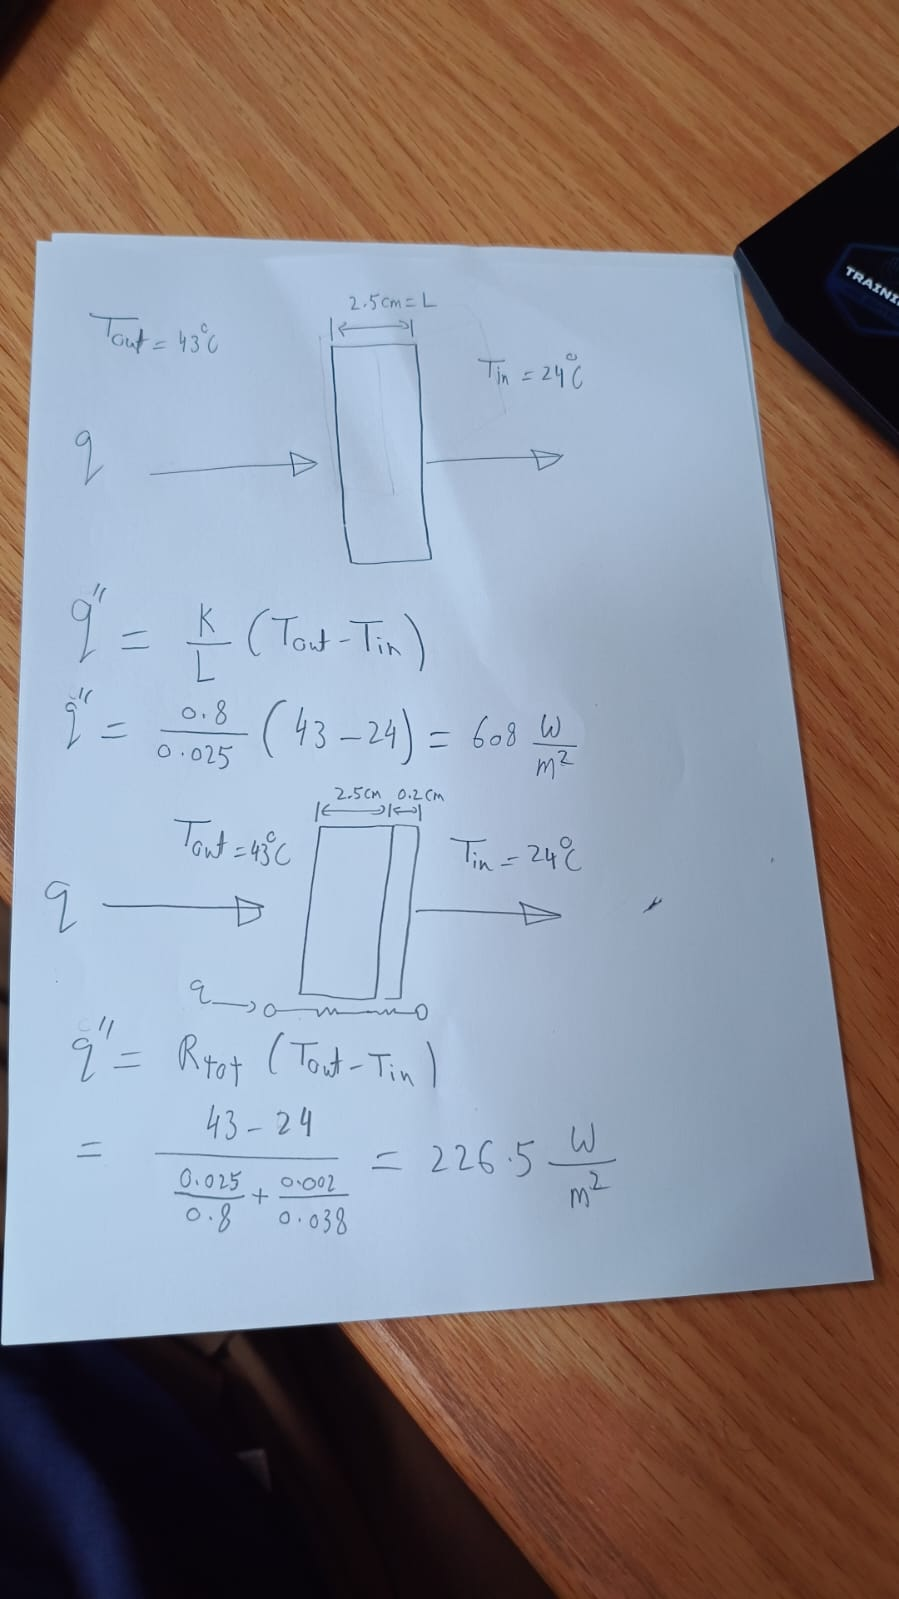 2.5cm = L
Tout = 43°C
Tin = 24°C
q
q" = K/L (Tout - Tin)
q" = 0.8/0.025 (43 - 24) = 608 W/m²
2.5cm 0.2cm
Tout = 43°C
Tin = 24°C
q
q
q" = Rtot (Tout - Tin)
= 43 - 24 / (0.025/0.8 + 0.002/0.038) = 226.5 W/m²